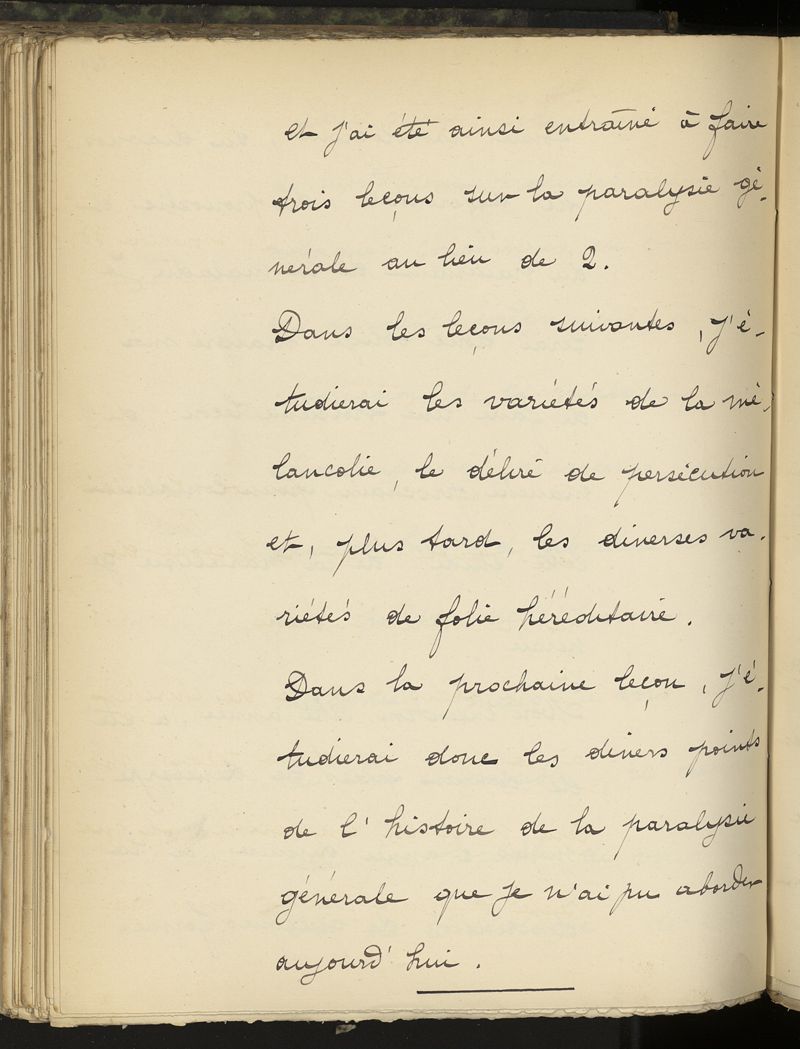 et j'ai été ainsi entraîné à faire
trois leçons sur la paralysie gé-
nérale au lieu de 2.
Dans les leçons suivantes, j'é-
tudierai les variétés de la mé-
lancolie, le délire de persécution
et, plus tard, les diverses va-
riétés de folie héréditaire.
Dans la prochaine leçon, j'é-
tudierai donc les divers points
de l'histoire de la paralysie
générale que je n'ai pu aborder
aujourd'hui.